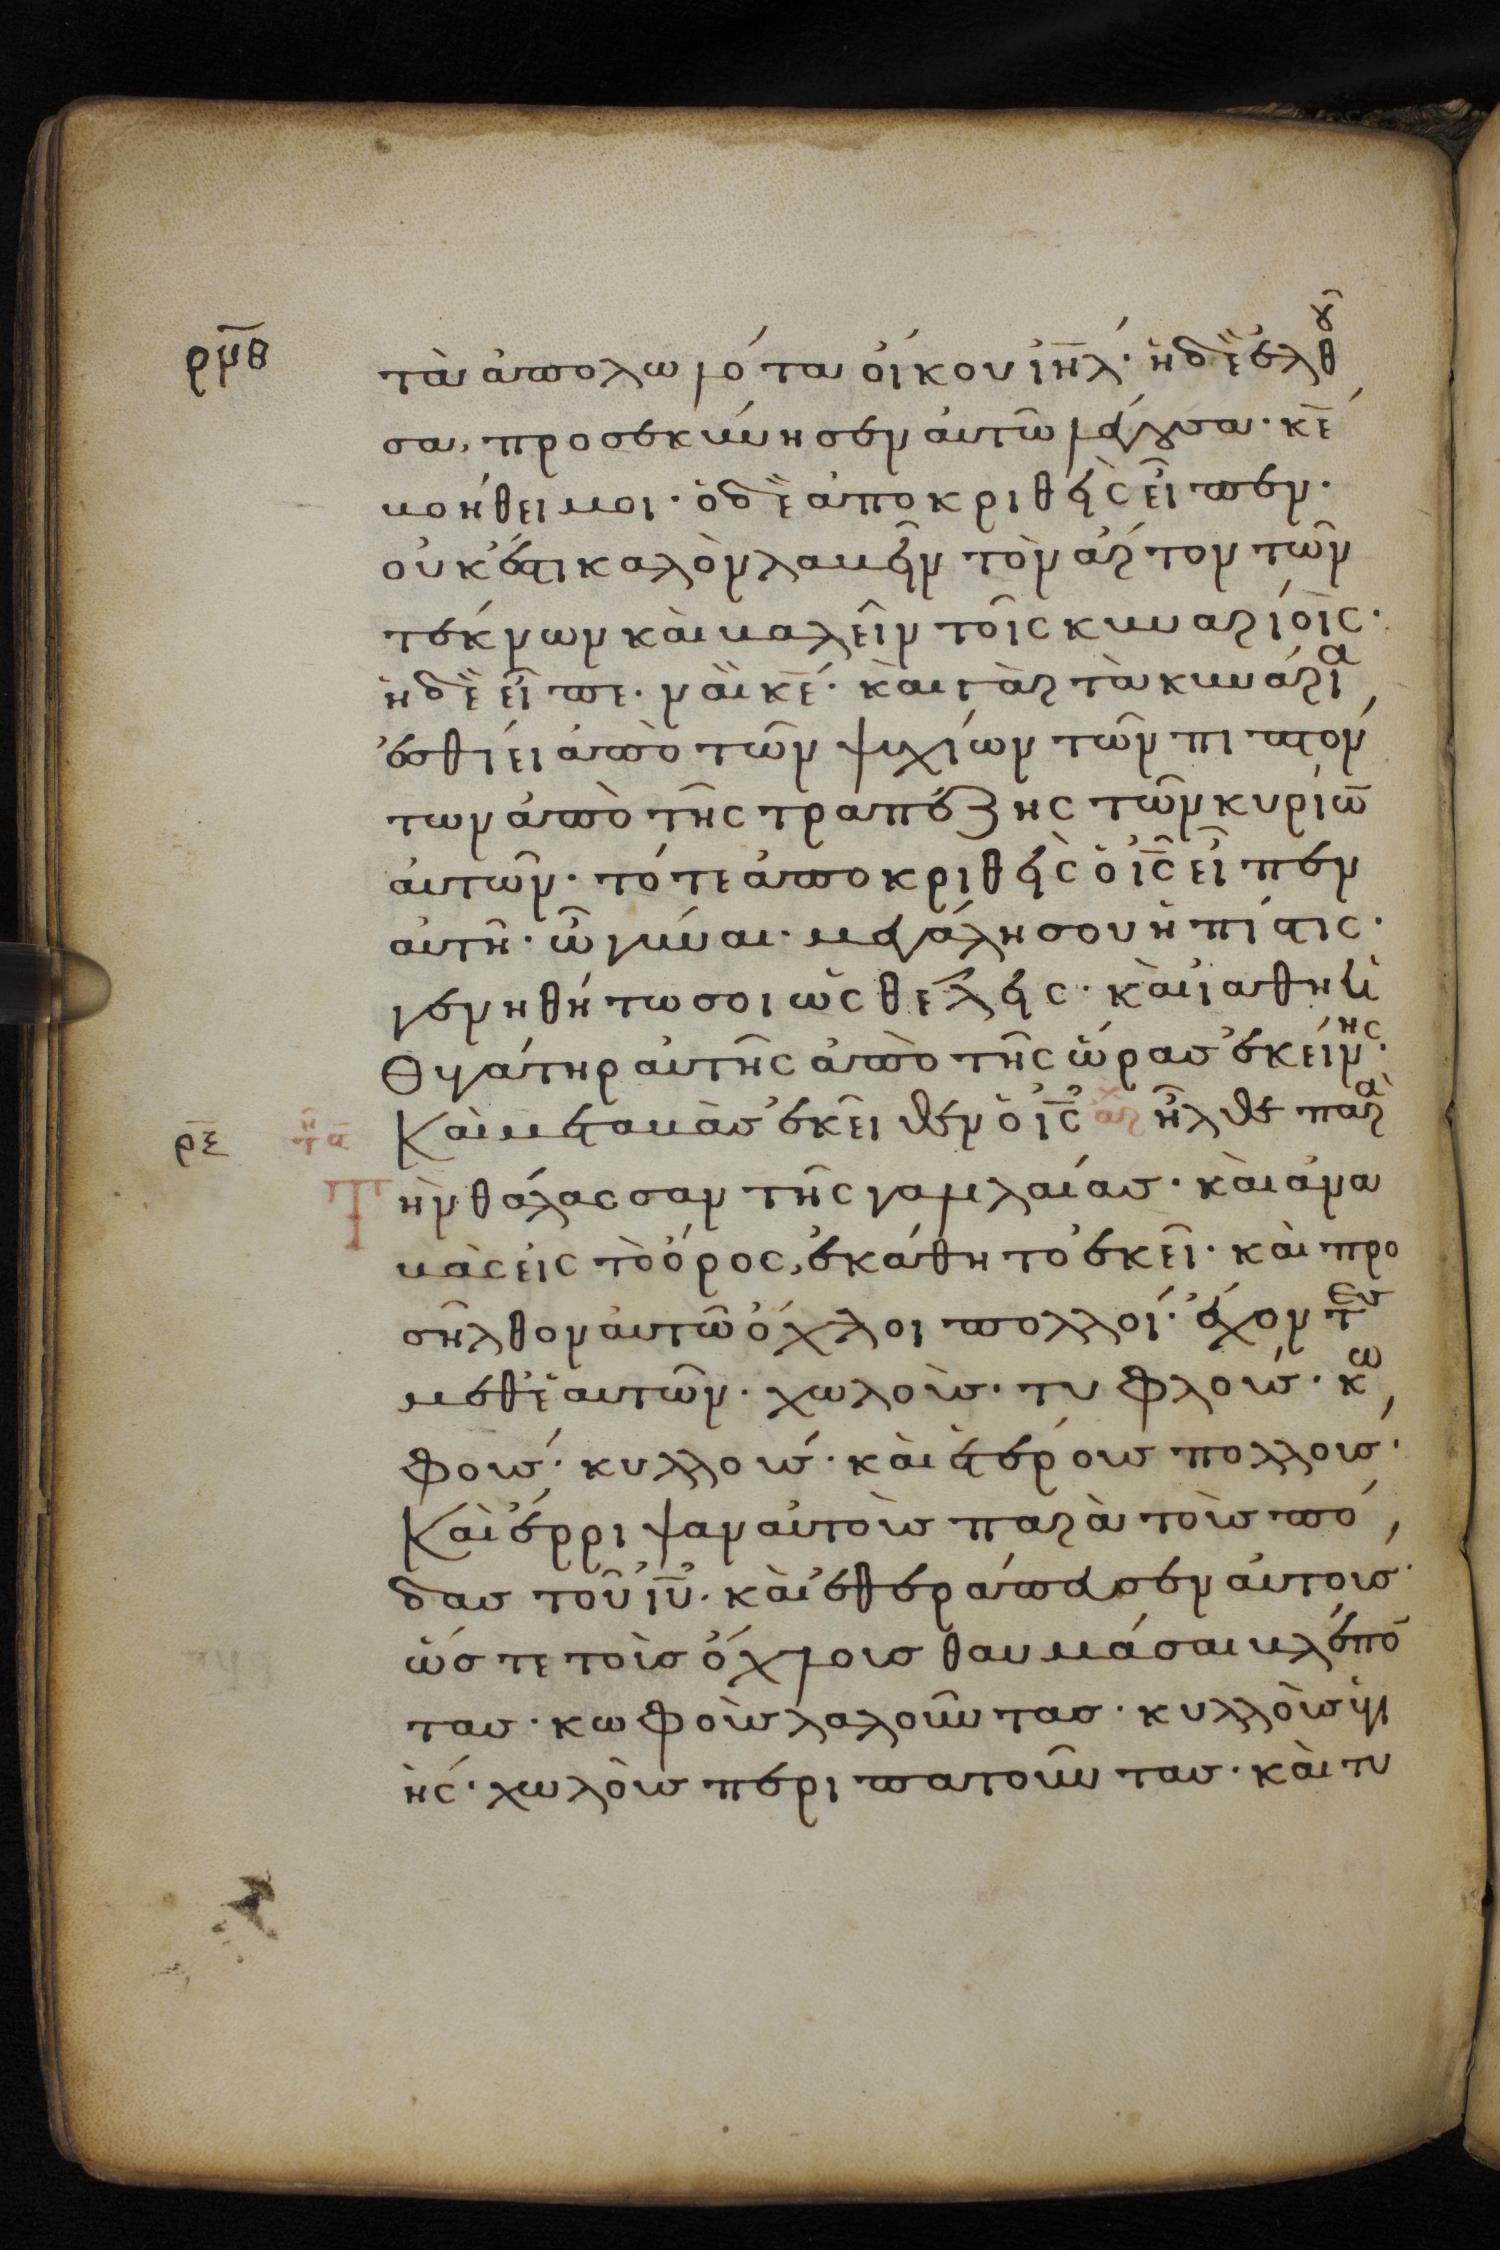 ρμθ
τὰ ἀπολωλότα οἴκου ιηλ· ἡ δὲ ἐλθοῦ
σα, προσεκύνησεν αὐτῶ λέγουσα· κε
βοήθει μοι· ὁ δὲ ἀποκριθεὶς εἶπεν·
οὐκ έστι καλὸν λαβεῖν τὸν ἄρτον τῶν
τέκνων καὶ βαλεῖν τοῖς κυναρίοις·
ἡ δὲ εἶπε· ναὶ κε· καὶ γὰρ τὰ κυνάρια
ἐσθίει ἀπὸ τῶν ψιχίων τῶν πιπτόν
των ἀπὸ τῆς τραπέζης τῶν κυρίων
αὐτῶν· τότε ἀποκριθεὶς ὁ ις εἶπεν
αὐτῆ· ὦ γύναι· μεγάλη σου ἡ πίστις·
γενηθήτω σοι ὡς θέλεις· καὶ ἰάθη ἡ
θυγάτηρ αὐτῆς ἀπὸ τῆς ὥρας ἐκείνης·
ρξ
Καὶ μεταβὰς ἐκεῖθεν ὁ ις αρχ ἦλθε παρὰ
τὴν θάλασσαν τῆς γαλιλαίας· καὶ ἀνα
βὰς εἰς τὸ ὄρος, ἐκάθητο ἐκεῖ· καὶ προ
σῆλθον αὐτῶ ὄχλοι πολλοί· ἔχοντες
μεθ' ἑαυτῶν· χωλοὺς· τυφλούς· κω
φούς· κυλλούς· καὶ ἑτέρους πολλούς·
Καὶ ἔρριψαν αὐτοὺς παρὰ τοὺς πό
δας τοῦ ιυ· καὶ ἐθεράπευσεν αὐτούς·
ὥστε τοὺς ὄχλους θαυμάσαι βλέπον
τας· κωφοὺς λαλοῦντας· κυλλοὺς ὑγι
ὴς· χωλοὺς περιπατοῦντας· καὶ τυ